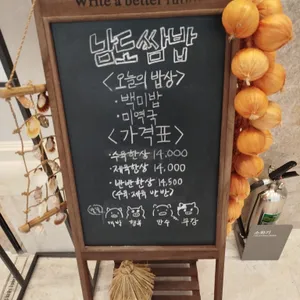 Write a better future
남도쌈밥
<오늘의 밥상>
·백미밥
·미역국
<가격표>
·수육한상 14,000
·제육한상 14,000
·반반한상 14,500
(수육·제육 반반)
소화기